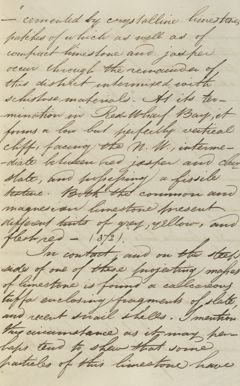 " cemented by crystalline limestone,
patches of which as well as of
compact limestone and jasper
occur through the remainder of
this district intermixed with
schistose materials. At its ter-
mination in Red Wharf Bay, it
forms a low but perfectly vertical
cliff, facing the N.W, interme-
diate between red jasper and
slate, and possessing a fissile
texture. Both the common and
magnesian limestone present
different tints of grey, yellow, and
flesh red – (372).
In contact, and on the steep
side of one of these projecting masses
of limestone is found a calcareous
tuffa enclosing fragments of slate,
and recent snail shells. I mention
this circumstance as it may per-
haps tend to shew that some
particles of this limestone have